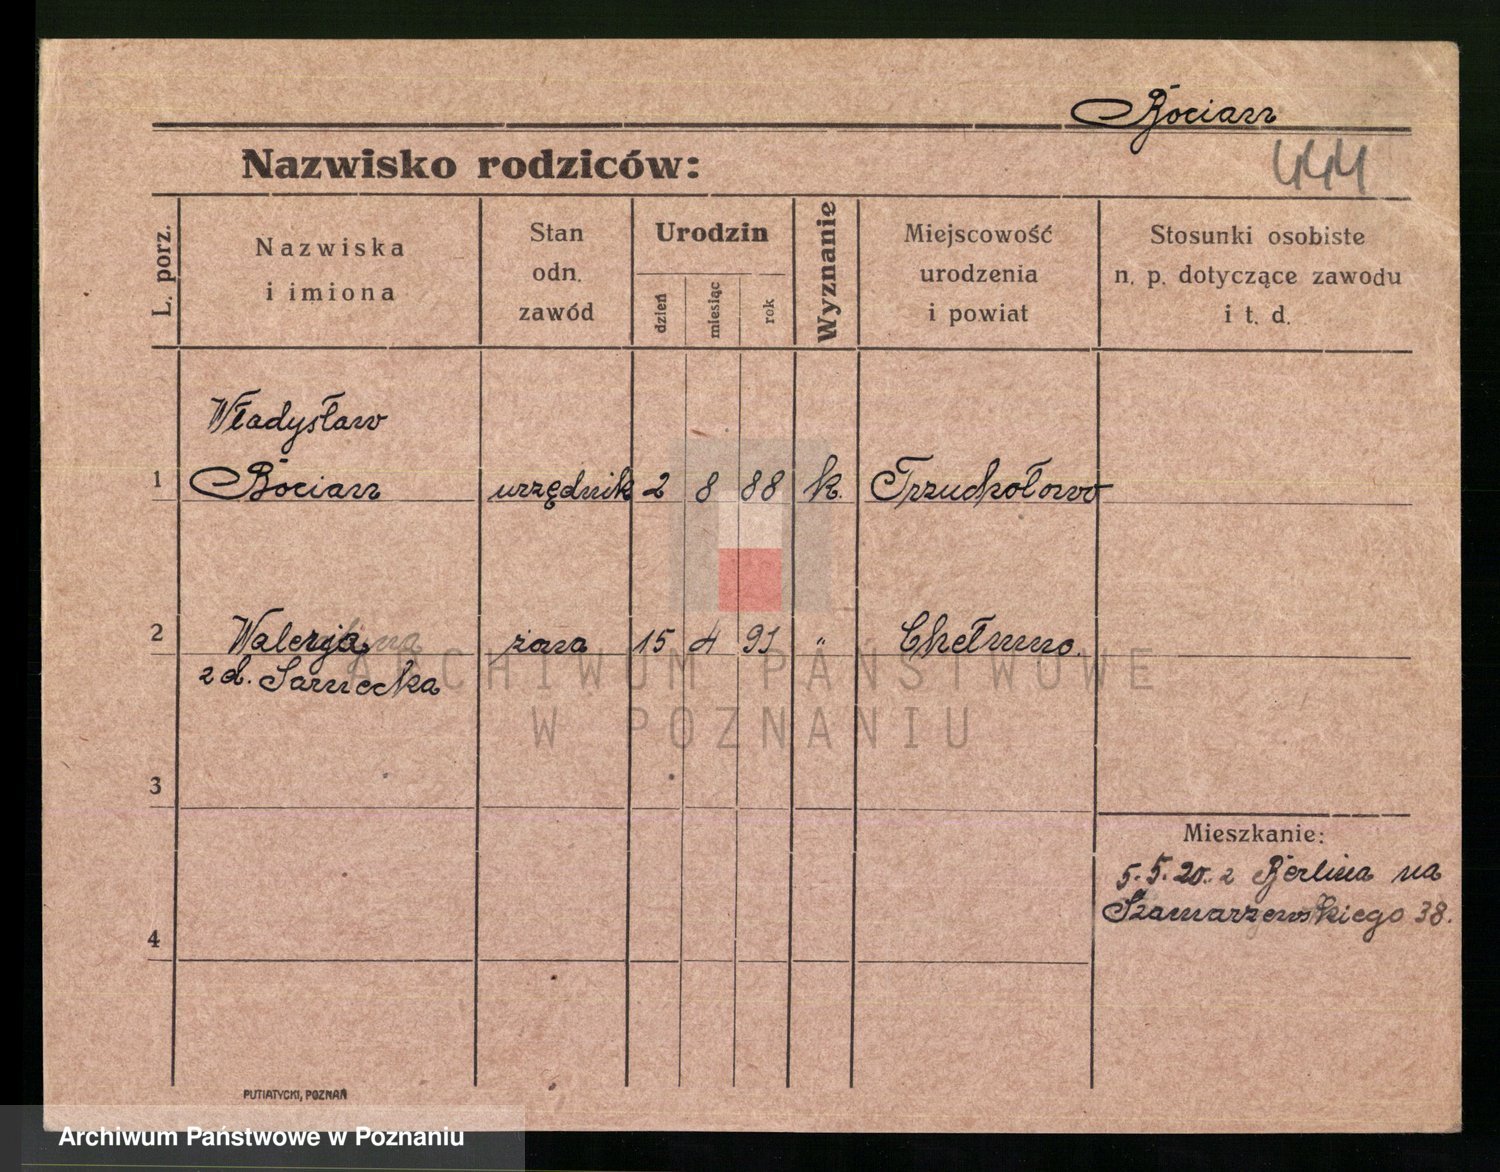 Bocian
Nazwisko rodziców:
444
L. porz.
Nazwiska
i imiona
Stan
odn.
zawód
Urodzin
dzień
miesiąc
rok
Wyznanie
Miejscowość
urodzenia
i powiat
Stosunki osobiste
n. p. dotyczące zawodu
i t. d.
Władysław
1 Bocian urzędnik 2 8 88 k. Trzuskołowo
2 Walerja żona 15 4 91 " Chełmno.
z d. Sarnecka
ARCHIWUM PAŃSTWOWE
W POZNANIU
3
Mieszkanie:
5.5.20. z Berlina na
Szamarzewskiego 38.
4
PUTIATYCKI, POZNAŃ
Archiwum Państwowe w Poznaniu